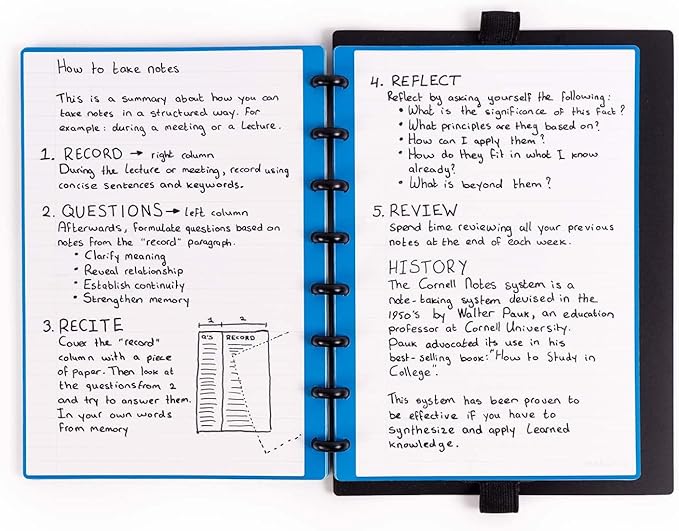 How to take notes
This is a summary about how you can
take notes in a structured way. For
example: during a meeting or a Lecture.
1. RECORD → right column
During the lecture or meeting, record using
concise sentences and keywords.
2. QUESTIONS → left column
Afterwards, formulate questions based on
notes from the "record" paragraph.
• Clarify meaning
• Reveal relationship
• Establish continuity
• Strengthen memory
3. RECITE
Cover the "record"
column with a piece
of paper. Then look at
the questions from 2
and try to answer them.
In your own words
from memory
1 2
Q's RECORD
4. REFLECT
Reflect by asking yourself the following:
• What is the significance of this fact?
• What principles are they based on?
• How can I apply them?
• How do they fit in what I know
already?
• What is beyond them?
5. REVIEW
Spend time reviewing all your previous
notes at the end of each week.
HISTORY
The Cornell Notes system is a
note-taking system devised in the
1950's by Walter Pauk, an education
professor at Cornell University.
Pauk advocated its use in his
best-selling book: "How to Study in
College".
This system has been proven to
be effective if you have to
synthesize and apply learned
knowledge.